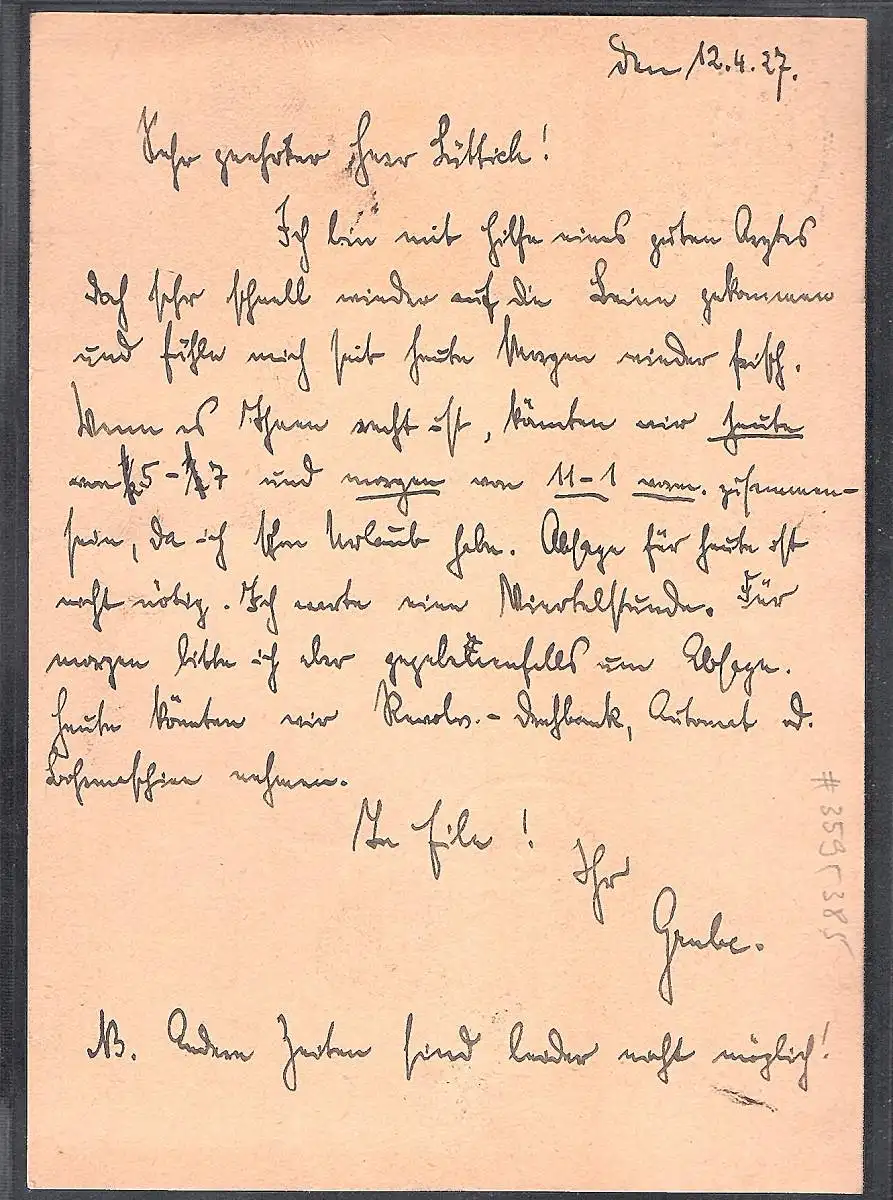 den 12.4.27.
Sehr geehrter Herr Lüttich!
Ich bin mit Hilfe eines guten Arztes
doch sehr schnell wieder auf die Beine gekommen
und fühle mich seit heute Morgen wieder frisch.
Wenn es Ihnen recht ist, könnten wir heute
von ½5-½7 und morgen von 11-1 vorm. zusammen-
sein, da ich schon Urlaub habe. Absage für heute ist
nicht nötig. Ich warte eine Viertelstunde. Für
morgen bitte ich aber gegebenenfalls um Absage.
Heute könnten wir Revolv.-Drehbank, Automat od.
Bohrmaschine nehmen.
In Eile!
Ihr
Grube.
NB. Andere Zeiten sind leider nicht möglich!